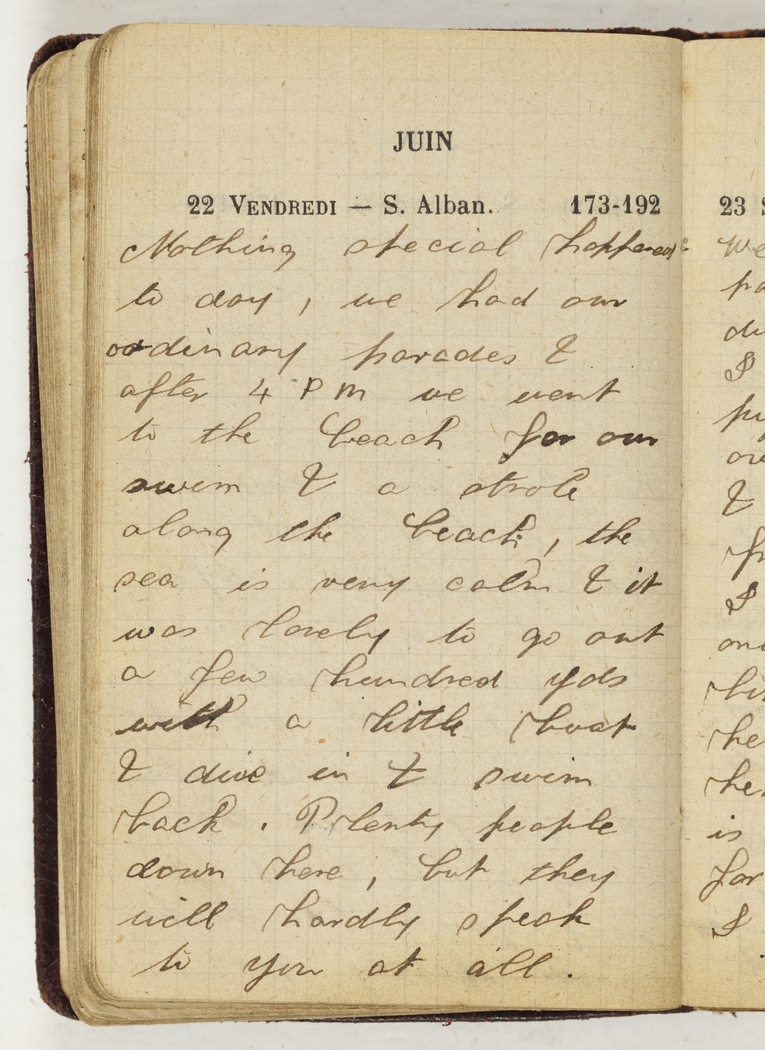 JUIN
22 VENDREDI — S. Alban. 173-192
Nothing special happened
to day, we had our
ordinary parades &
after 4 P M we went
to the beach for our
swim & a strole
along the beach, the
sea is very calm & it
was lovely to go out
a few hundred yds
with a little boat
& dive in & swim
back. Plenty people
down here, but they
will hardly speak
to you at all.
23 S
We
pa
du
I
pu
&
fr
I
and
his
he
he
is
for
I